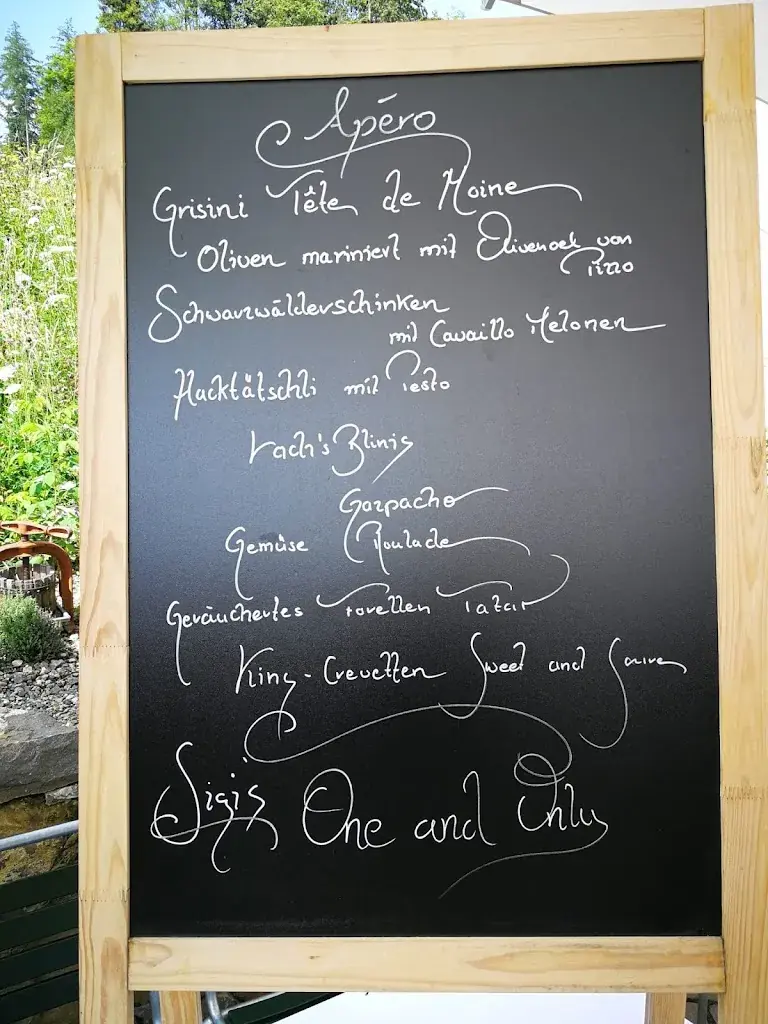 Apéro
Grisini Tête de Moine
Oliven mariniert mit Olivenoel von
Pizzo
Schwarzwälderschinken
mit Cavaillo Melonen
Hacktätschli mit Pesto
Lach's Blinis
Gazpacho
Gemüse Roulade
Geräuchertes Forellen Tatar
King-Crevetten Sweet and
Sigis One and Only